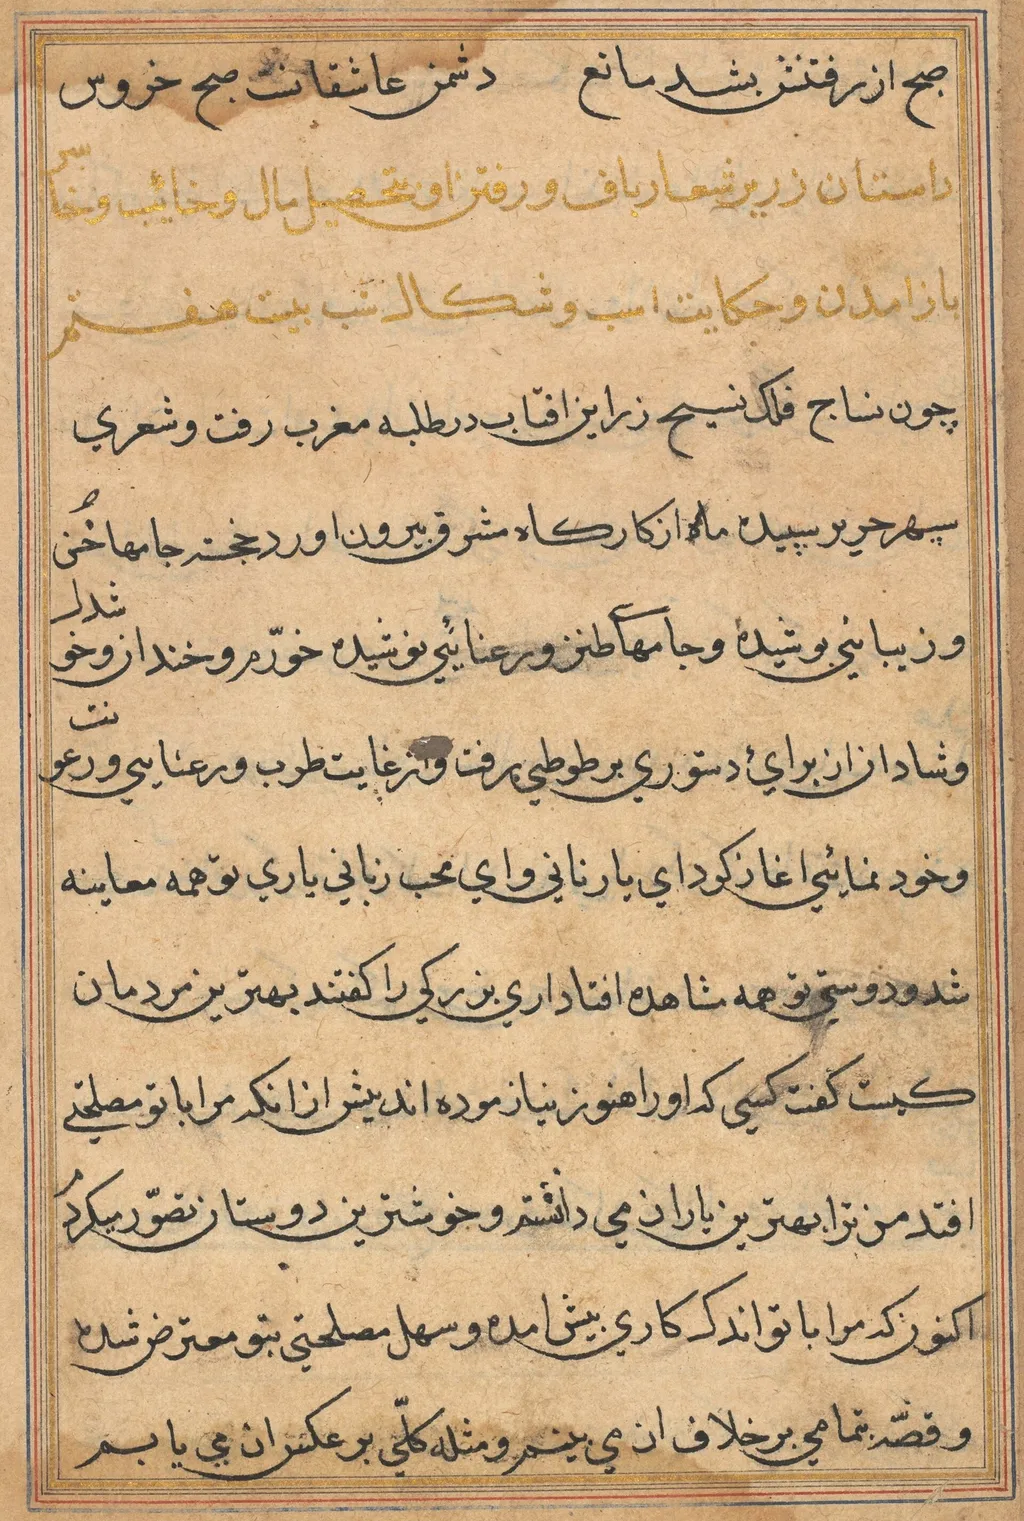 صبح از رفتنش بشد مانع دشمن عاشقانست صبح خروس
داستان زریر شعارباف و رفتن او بتحصیل مال و خائب و خاسر
باز امدن و حکایت اسب و شکال شب بیست هفتم
چون نساج فلک نسیج زرابن افتاب در طلبه مغرب رفت و شعری
سپهر حریر سپیده ماه از کارکاه مشرق بیرون اورد خجسته جامها حُسن
و زیبائی پوشیده و جامهاے طنز و رعنائی نوشیده خورّم و خندان و خوشدل
و شادان از برایٔ دستوری بر طوطی رفت و از غایت طرب و رعنایی و رعونت
و خود نمائی اغاز کرد ای یار نانی و ای محب زبانی یاری تو همه معاینه
شد و دوستی تو همه مشاهده افتاد اری بزرکی را کفتند بهترین مردمان
کیست کفت کسی که او را هنوز نیازموده اند بیش از انکه مرا با تو مصلحتی
افتد من ترا بهترین یاران می دانستم و خوشترین دوستان تصوّر میکردم
اکنون که مرا با تو اندک کاری پیش امده و سهل مصلحتی بتو معترض شده
و قصّه بتمامی بر خلاف ان می بینم و مثله کلّی بر عکس ان می یابم